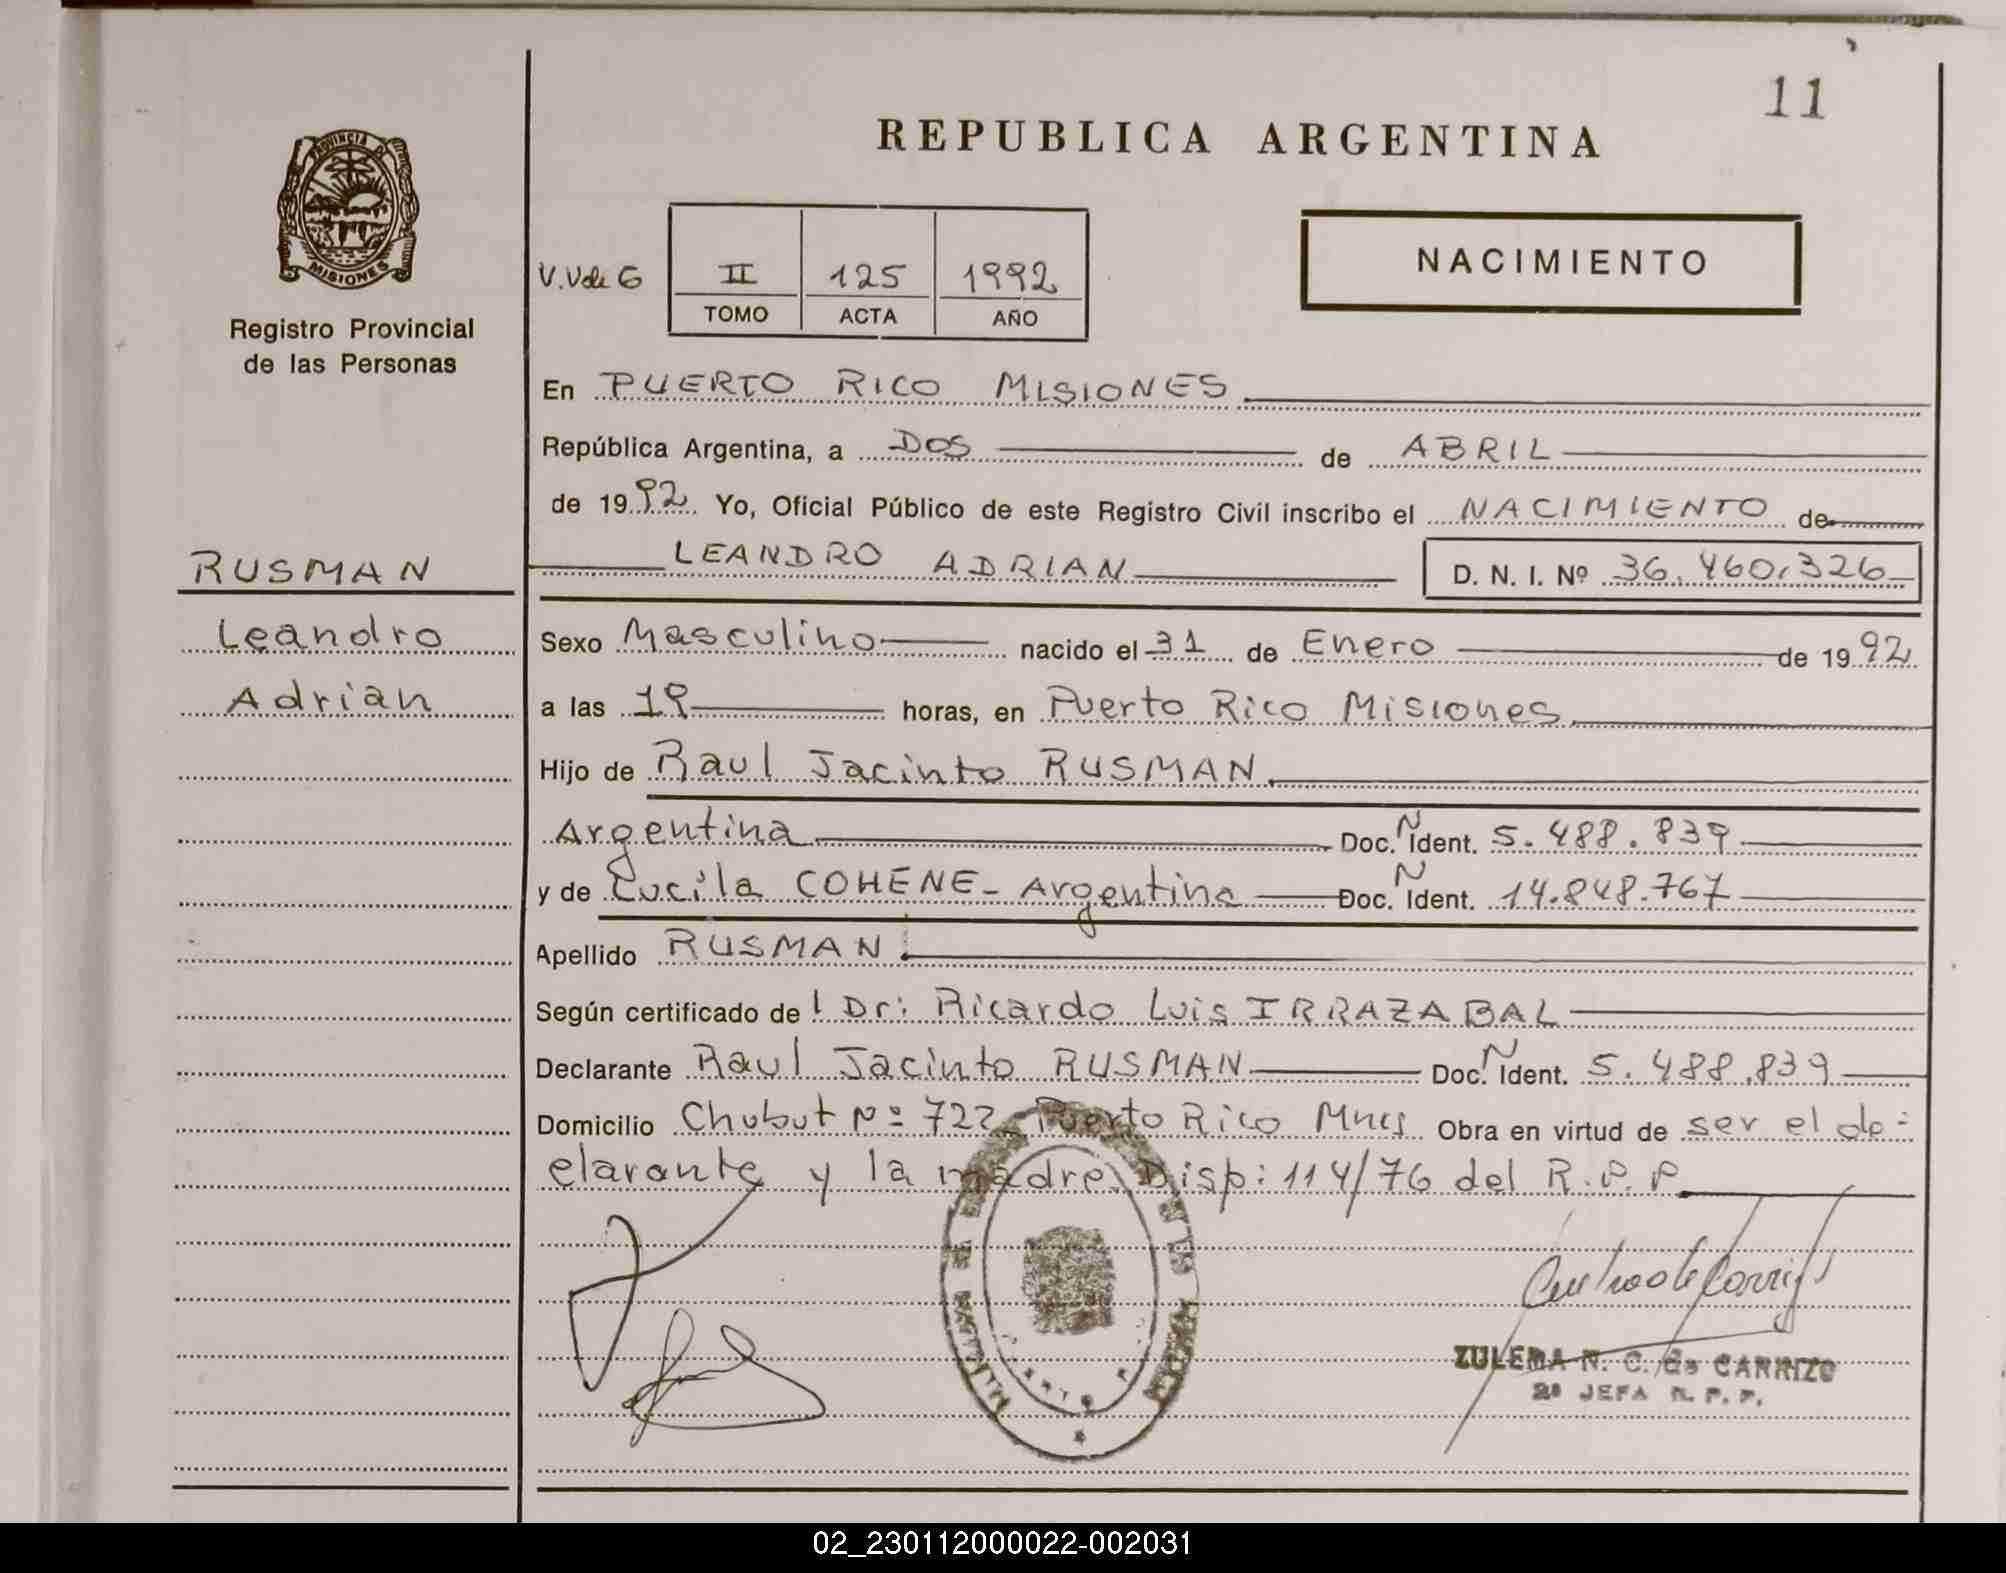 11
REPUBLICA ARGENTINA
PROVINCIA D
MISIONES
Registro Provincial
de las Personas
V.Vde G
II 125 1992
TOMO ACTA AÑO
NACIMIENTO
En PUERTO RICO MISIONES
República Argentina, a DOS de ABRIL
de 1992. Yo, Oficial Público de este Registro Civil inscribo el NACIMIENTO de
LEANDRO ADRIAN D. N. I. Nº 36.460.326
RUSMAN
Leandro
Adrian
Sexo Masculino nacido el 31 de Enero de 1992
a las 19 horas, en Puerto Rico Misiones
Hijo de Raul Jacinto RUSMAN
Argentina Doc. N Ident. 5.488.839
y de Lucila COHENE - Argentina Doc. N Ident. 14.848.767
Apellido RUSMAN
Según certificado del Dr: Ricardo Luis IRRAZABAL
Declarante Raul Jacinto RUSMAN Doc. N Ident. 5.488.839
Domicilio Chubut Nº 722 Puerto Rico Mnes Obra en virtud de ser el de-
clarante y la madre. Disp: 114/76 del R.P.P
ZULEMA N. C. de CARRIZO
2ª JEFA R. P. P.
02_230112000022-002031